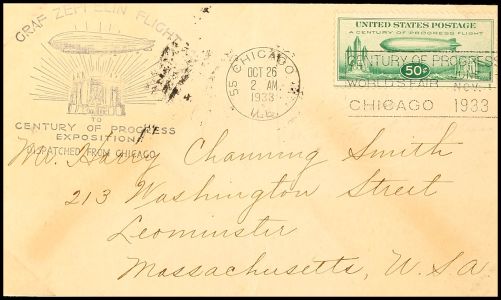 GRAF ZEPPELIN FLIGHT
TO
CENTURY OF PROGRESS
EXPOSITION
DISPATCHED FROM CHICAGO
CHICAGO
OCT 26
2 AM
1933
55
UNITED STATES POSTAGE
A CENTURY OF PROGRESS FLIGHT
50¢
CENTURY OF PROGRESS
WORLD'S FAIR NOV. 1
CHICAGO 1933
Mr. Harry Channing Smith
213 Washington Street
Leominster
Massachusetts, U.S.A.